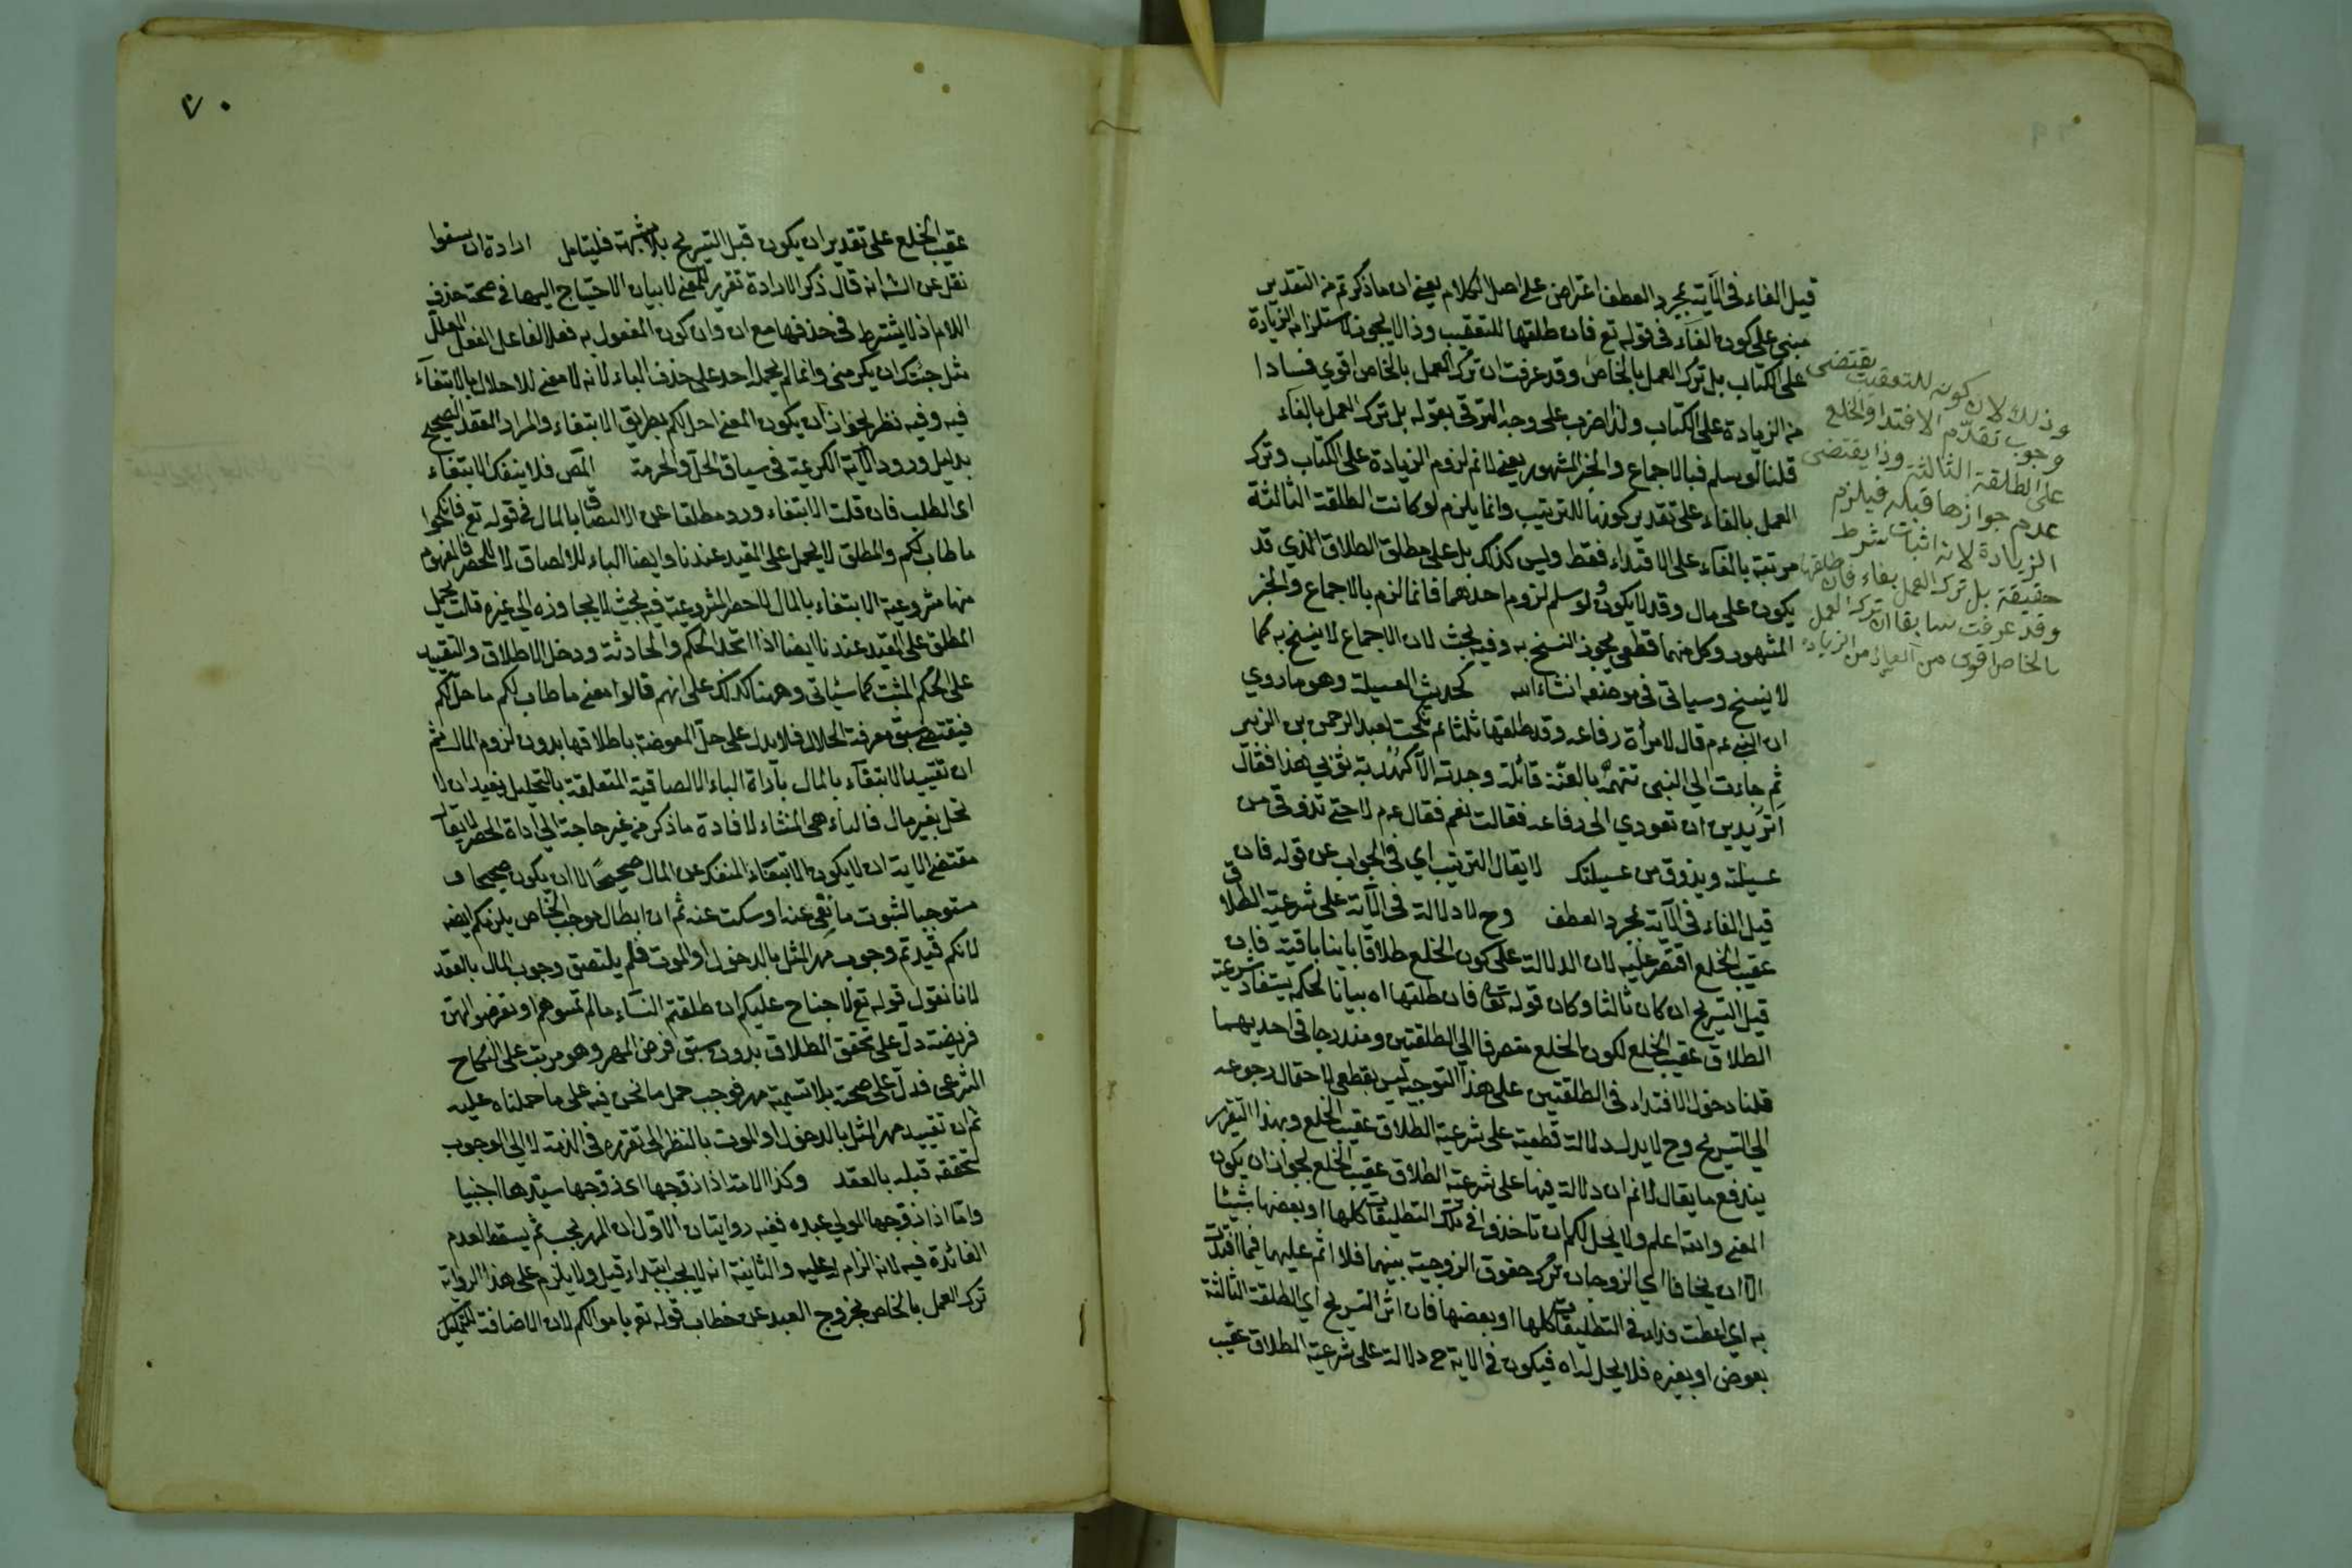 قيل الفاء فى الآية لمجرد العطف اعتراض على اصل الكلام يعنى ان ما ذكرتم من التقدير
مبنى على كون الفاء فى قوله تع فان طلقها للتعقيب وذا لا يجوز لاستلزامه الزيادة
على الكتاب بل ترك العمل بالخاص وقد عرفت ان ترك العمل بالخاص اقوي فسادا
من الزيادة على الكتاب ولذا اضرب على وجه الترقى بقوله بل ترك العمل بالفاء
قلنا لو سلم فبالاجماع والخبر المشهور يعنى لا نم لزوم الزيادة على الكتاب وترك
العمل بالفاء على تقدير كونها للترتيب وانما يلزم لو كانت الطلقة الثالثة
مرتبة بالفاء على الافتداء فقط وليس كذلك بل على مطلق الطلاق الذي قد
يكون على مال وقد لا يكون ولو سلم لزوم احدهما فانما لزم بالاجماع والخبر
المشهور وكل منهما قطعى يجوز النسخ به وفيه بحث لان الاجماع لا ينسخ به كما
لا ينسخ وسياتى فى موضعه انشاء الله كحديث العسيلة وهو ما روي
ان النبى عم قال لامرأة رفاعه وقد طلقها ثلثا ثم نكحت لعبد الرحمن بن الزبير
ثم جاءت الى النبى تتهمه بالعنة قائلة وجدته الا كهدبة ثوبى هذا فقال
أتريدين ان تعودي الى رفاعه فقالت نعم فقال عم لا حتى تذوقى من
عسيلته ويذوق من عسيلتك لا يقال الترتيب اي فى الجواب عن قوله فان
قيل الفاء فى الآية لمجرد العطف وح لا دلالة فى الآية على شرعية الطلاق
عقيب الخلع اقتصر عليه لان الدلالة على كون الخلع طلاقا باينا باقية فان
قيل التسريح ان كان ثالثا وكان قوله تعا فان طلقها اه بيانا لحكمه يستفاد شرعية
الطلاق عقيب الخلع لكون الخلع منصرفا الى الطلقتين ومندرجا فى احديهما
قلنا دخول الافتداء فى الطلقتين على هذا التوجيه ليس بقطعى لاحتمال رجوعه
الى التسريح وح لا يدل دلالة قطعية على شرعية الطلاق عقيب الخلع وبهذا التقرير
يندفع ما يقال لا نم ان دلالة فيها على شرعية الطلاق عقيب الخلع لجواز ان يكون
المعنى والله اعلم ولا يحل لكم ان تاخذوا فى تلك التطليقات كلها او بعضها شيئا
الا ان يخافا اي الزوجان ترك حقوق الزوجية بينهما فلا اثم عليهما فيما افتدت
به اي اعطت فداء فى التطليقات كلها او بعضها فان اثر التسريح اي الطلقة الثالثة
بعوض او بغيره فلا يحل له اه فيكون فى الاية ح دلالة على شرعية الطلاق عقيب
وذلك لان كونه للتعقيب يقتضى
وجوب تقدم الافتداء والخلع
على الطلقة الثالثة وذا يقتضى
عدم جوازها قبله فيلزم
الزيادة لانه اثبات شرط
حقيقة بل ترك العمل بفاء فان طلقها
وقد عرفت سابقا ان ترك العمل
بالخاص اقوى من الزيادة
٧٠
عقيب الخلع على تقدير ان يكون قبل التسريح بلا شبهة فليتامل ارادة ان
نقل عن الشه انه قال ذكر الارادة تقرير للمعنى لا بيان الاحتياج اليها فى صحة حذف
اللام اذ لا يشترط فى حذفها مع ان وان كون المفعول به فعلا لفاعل الفعل المعلل
مثل جئتك ان يكرمنى وانما لم يحمله احد على حذف الباء لانه لا معنى للاحلال بالابتغاء
فيه وفيه نظر لجواز ان يكون المعنى احل لكم بطريق الابتغاء والمراد العقد الصحيح
بدليل ورود الآية الكريمة فى سياق الحل والحرمة المص فلا ينفك الابتغاء
اى الطلب فان قلت الابتغاء ورد مطلقا عن الالتصاق بالمال فى قوله تع فانكحوا
ما طاب لكم والمطلق لا يحمل على المقيد عندنا وايضا الباء للالصاق لا للحصر فالمفهوم
منها مشروعية الابتغاء بالمال لا حصر المشروعية فيه بحيث لا يجاوزه الى غيره قلت يحمل
المطلق على المقيد عندنا ايضا اذا اتحد الحكم والحادثة ودخل الاطلاق والتقييد
على الحكم المثبت كما سيأتى وههنا كذلك على انهم قالوا معنى ما طاب لكم ما حل لكم
فيقتضى سبق معرفة الحلال فلا يدل على حل المعوضة باطلاقها بدون لزوم المال ثم
ان تقييد الابتغاء بالمال بأداة الباء الالصاقية المتعلقة بالتحليل يفيد ان لا
تحل بغير مال فالباء هى المنشاء لافادة ما ذكر من غير حاجة الى اداة الحصر لا يقال
مقتضى الاية ان لا يكون الابتغاء المنفك عن المال صحيحا لا ان يكون صحيحا و
مستوجبا لثبوت ما نفى عنه او سكت عنه ثم ان ابطال موجب الخاص يلزمكم ايضه
لانكم قيدتم وجوب مهر المثل بالدخول او الموت فلم يلتصق وجوب المال بالعقد
لانا نقول قوله تع لا جناح عليكم ان طلقتم النساء ما لم تمسوهن او تفرضوا لهن
فريضة دل على تحقق الطلاق بدون سبق فرض المهر وهو مرتب على النكاح
الشرعى فدل على صحته بلا تسمية مهر فوجب حمل ما نحن فيه على ما حملناه عليه
ثم ان تقييد مهر المثل بالدخول او الموت بالنظر الى تقرره فى الذمة لا الى الوجوب
لتحققه قبله بالعقد وكذا الامة اذا زوجها اى زوجها سيدها اجنبيا
واما اذا زوجها المولى عبده ففيه روايتان الاول ان المهر يجب ثم يسقط لعدم
الفائدة فيه لانه الزام له عليه والثانية انه لا يجب ابتداء قيل ولا يلزم على هذا الرواية
ترك العمل بالخاص لخروج العبد عن خطاب قوله تع باموالكم لان الاضافة للتمليك